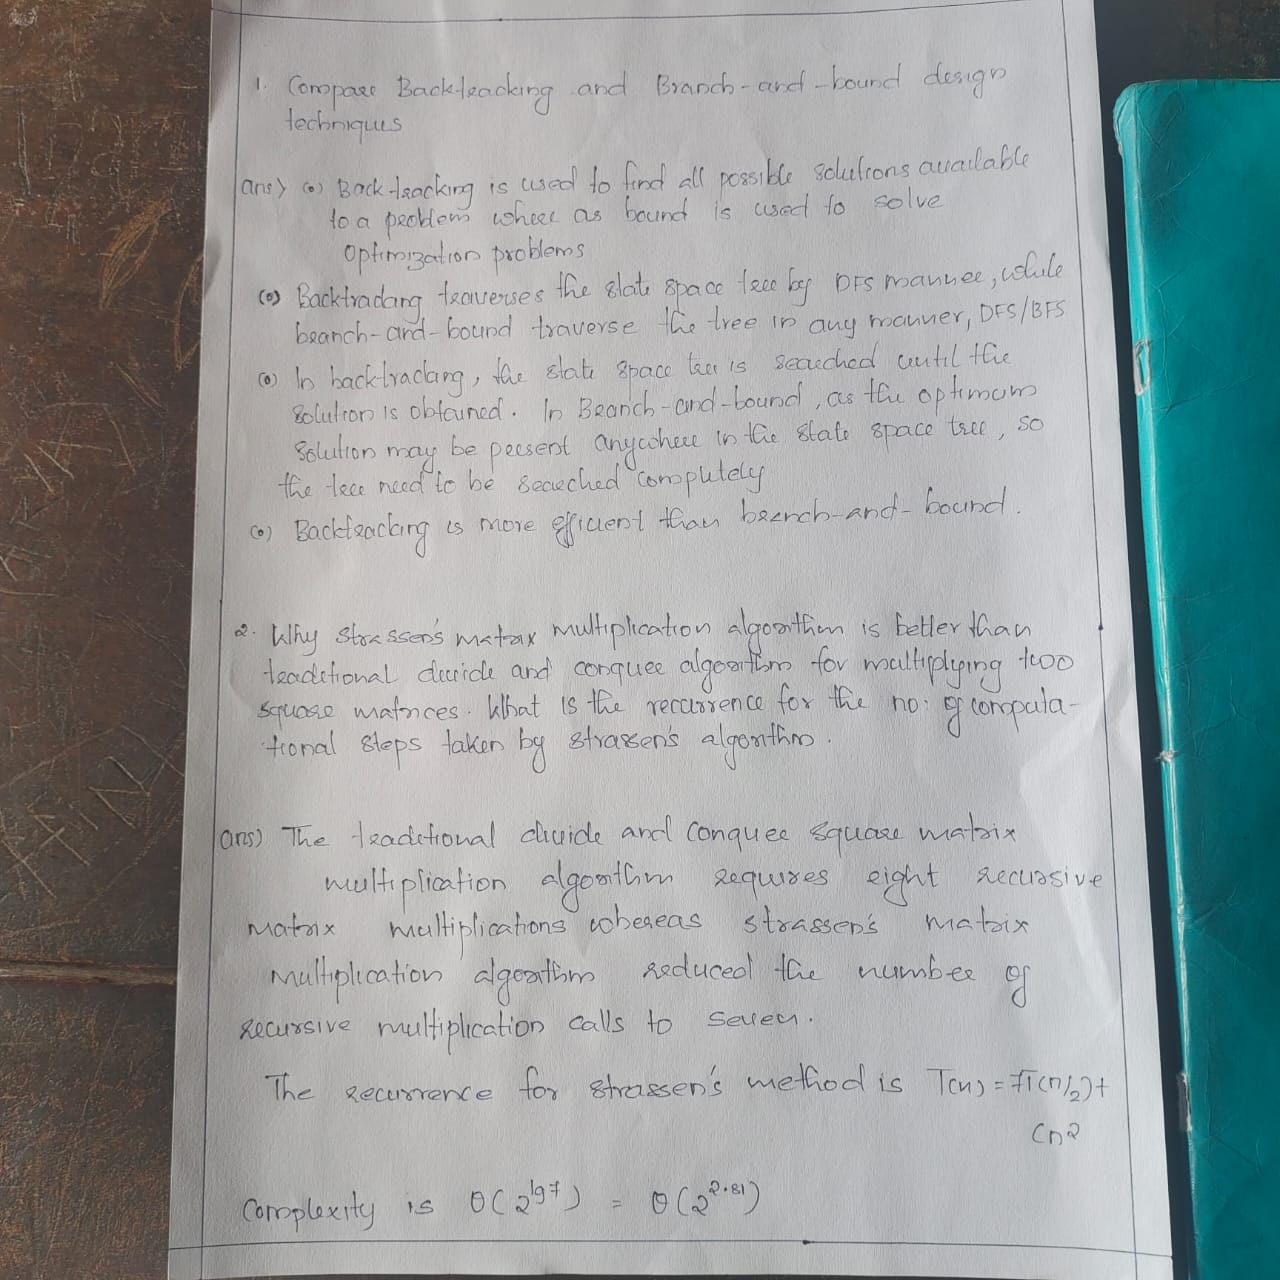 1. Compare Backtracking and Branch-and-bound design
techniques
ans) (o) Backtracking is used to find all possible solutions available
to a problem where as bound is used to solve
Optimization problems
(o) Backtracking traverses the state space tree by DFS manner, while
branch-and-bound traverse the tree in any manner, DFS/BFS
(o) In backtracking, the state space tree is searched until the
solution is obtained. In Branch-and-bound, as the optimum
solution may be present anywhere in the state space tree, so
the tree need to be searched completely
(o) Backtracking is more efficient than branch-and-bound.
2. Why Strassen's matrix multiplication algorithm is better than
traditional divide and conquer algorithm for multiplying two
square matrices. What is the recurrence for the no: of computa-
tional steps taken by strassen's algorithm.
ans) The traditional divide and conquer square matrix
multiplication algorithm requires eight recursive
matrix multiplications whereas strassen's matrix
multiplication algorithm reduced the number of
recursive multiplication calls to seven.
The recurrence for strassen's method is T(n) = 7T(n/2)+
Cn2
Complexity is θ(2^lg7) = θ(2^2.81)